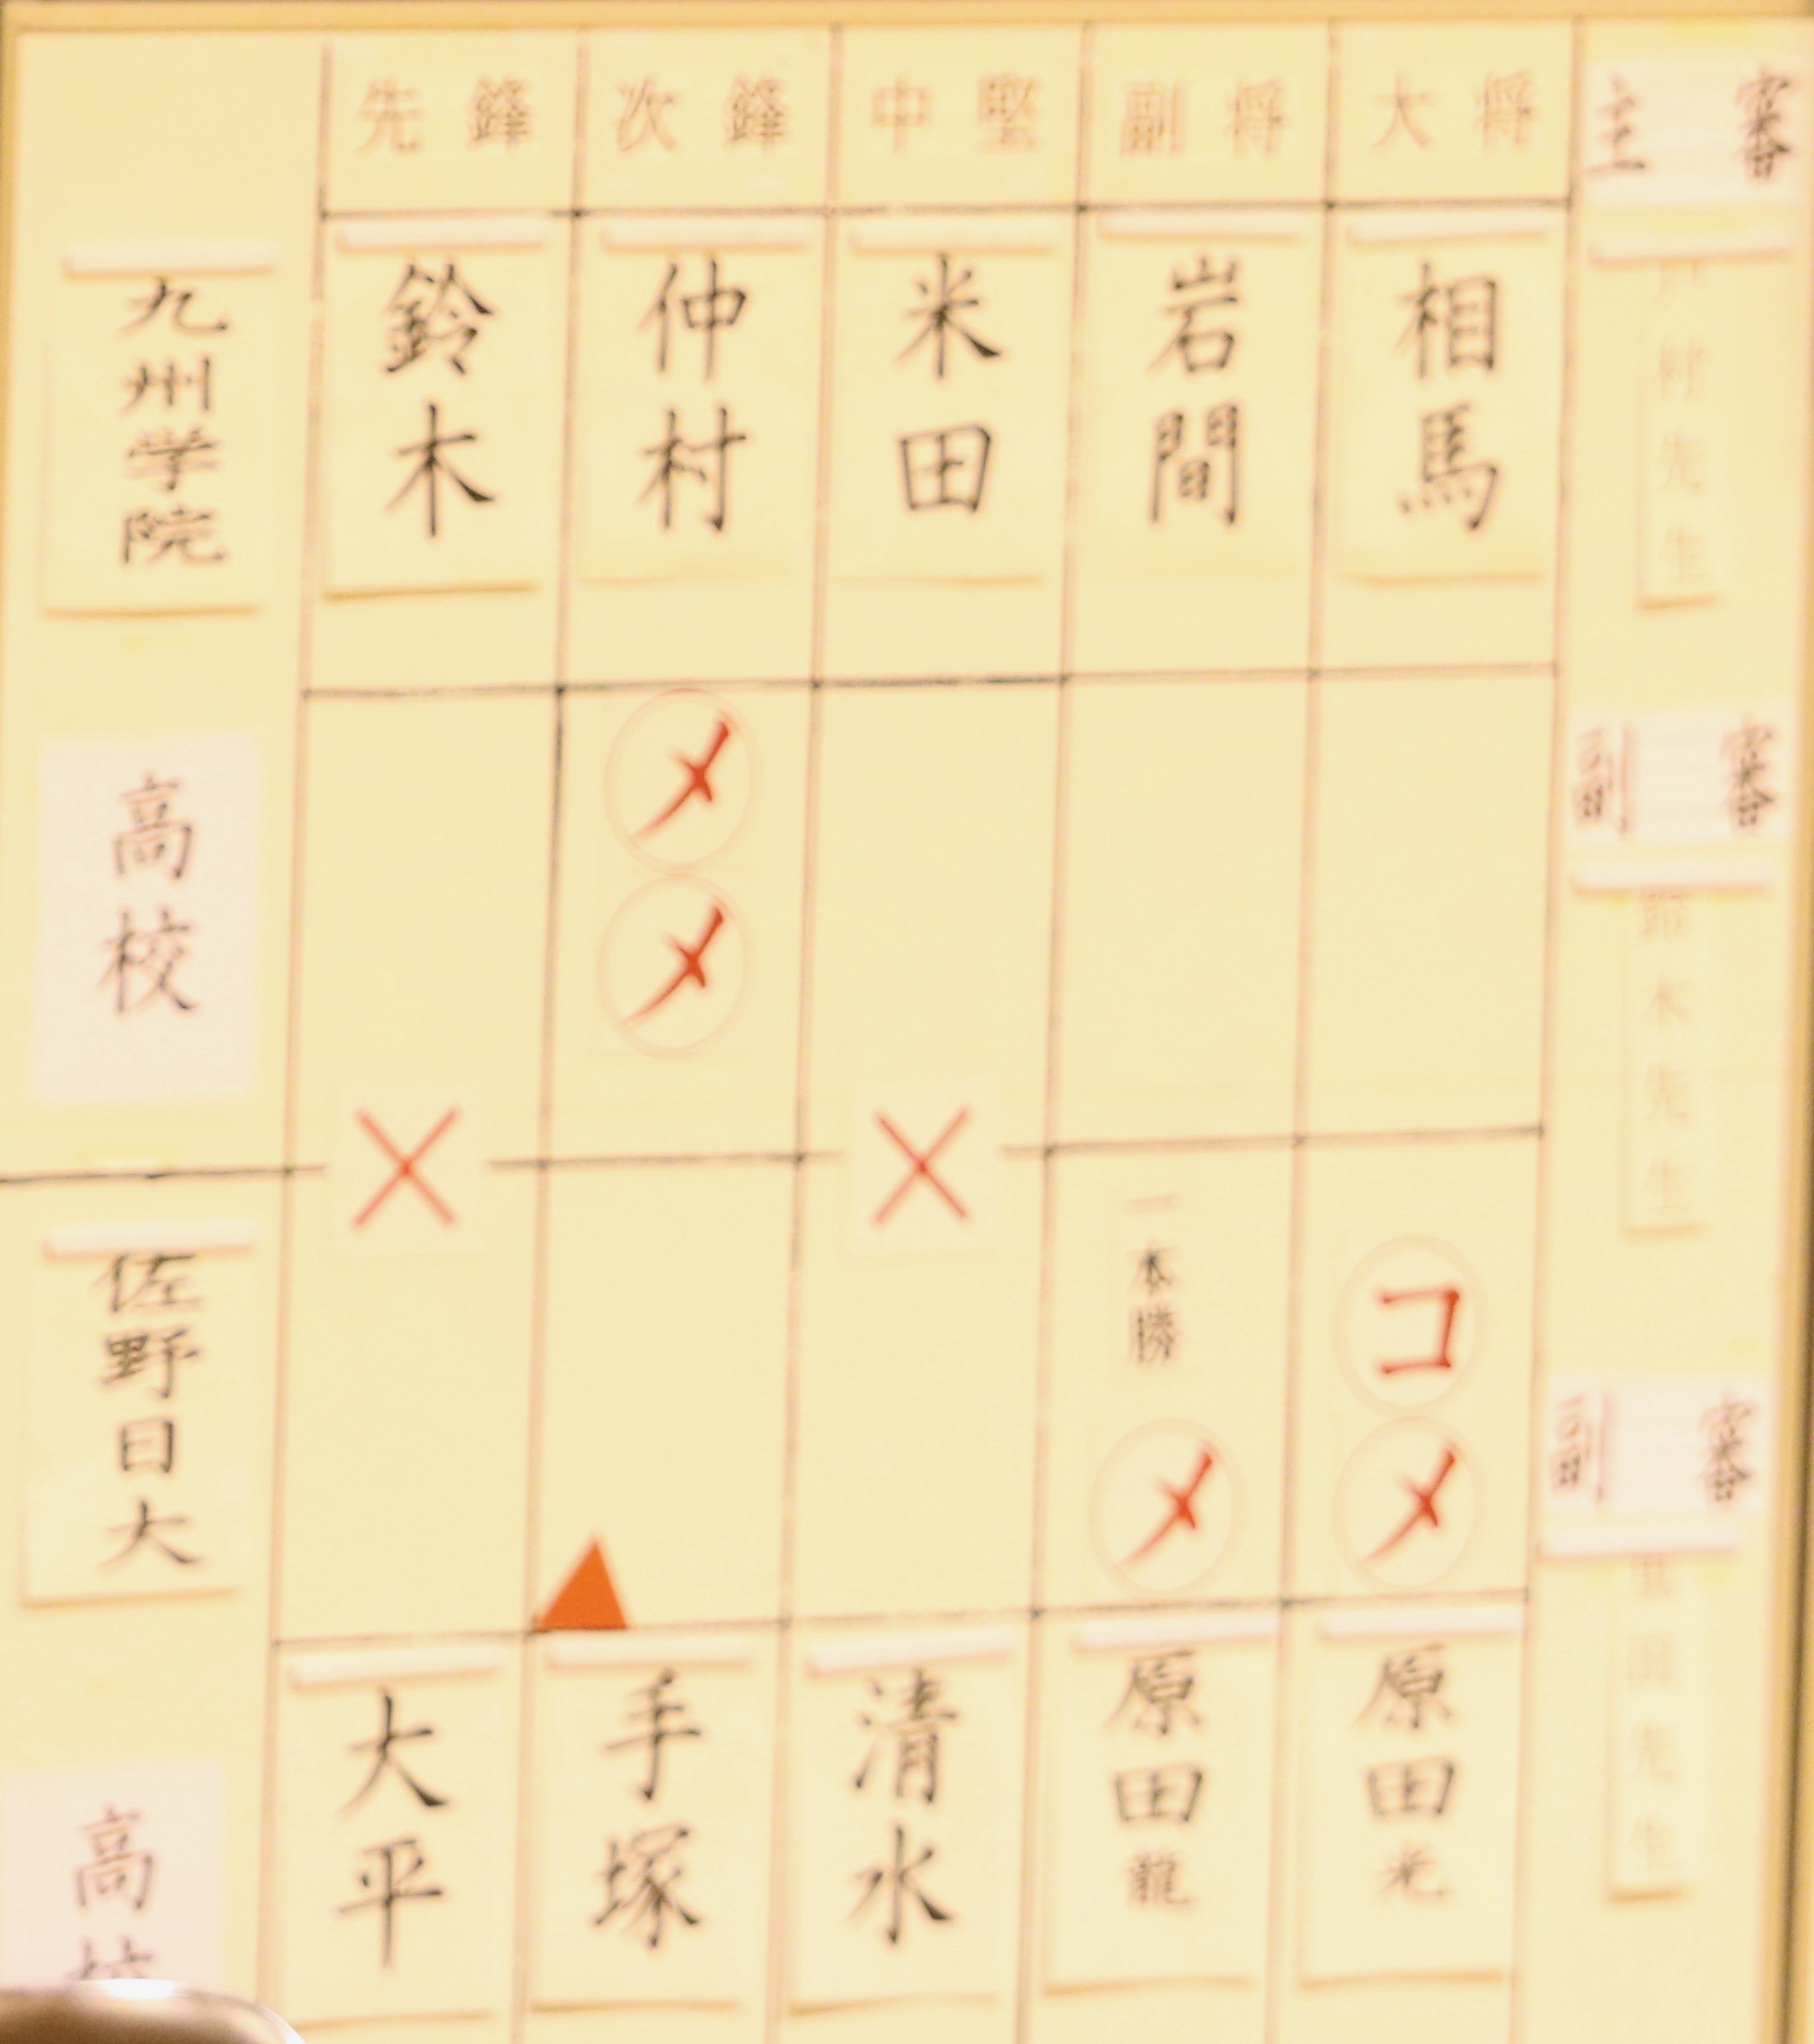 先鋒 次鋒 中堅 副将 大将 主審
九州学院
高校
鈴木
仲村
米田
岩間
相馬
村先生
メ
メ
副審
木先生
×
×
佐野日大
高校
一本勝
メ
コ
メ
副審
先生
大平
手塚
清水
原田龍
原田光